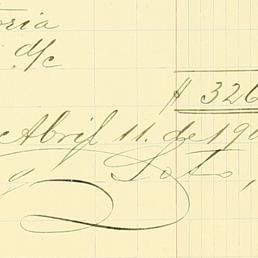 oria
d/c
# 326
Abril 11. de 190
y Soto,